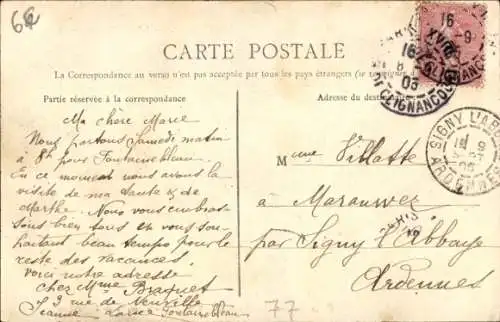 6€
CARTE POSTALE
La Correspondance au verso n'est pas acceptée par tous les pays étrangers (se renseigner à
Partie réservée à la correspondance
Adresse du
Ma chère Marie
Nous partons Samedi matin
à 8h pour Fontainebleau.
En ce moment nous avons la
visite de ma tante & de
Marthe. Nous vous embras-
sons bien tous en vous sou-
haitant beau temps pour le
reste des vacances.
Voici notre adresse
chez Mme Braquet
3 rue de Neuville
Jeanne Fontainebleau
Mme Villatte
à Marauwez
par Signy l'Abbaye
Ardennes
77
16
XVIII
16
8
05
CLIGNANCOURT
16 9
XVIII
SIGNY L'ABB
9
05
ARDENNES